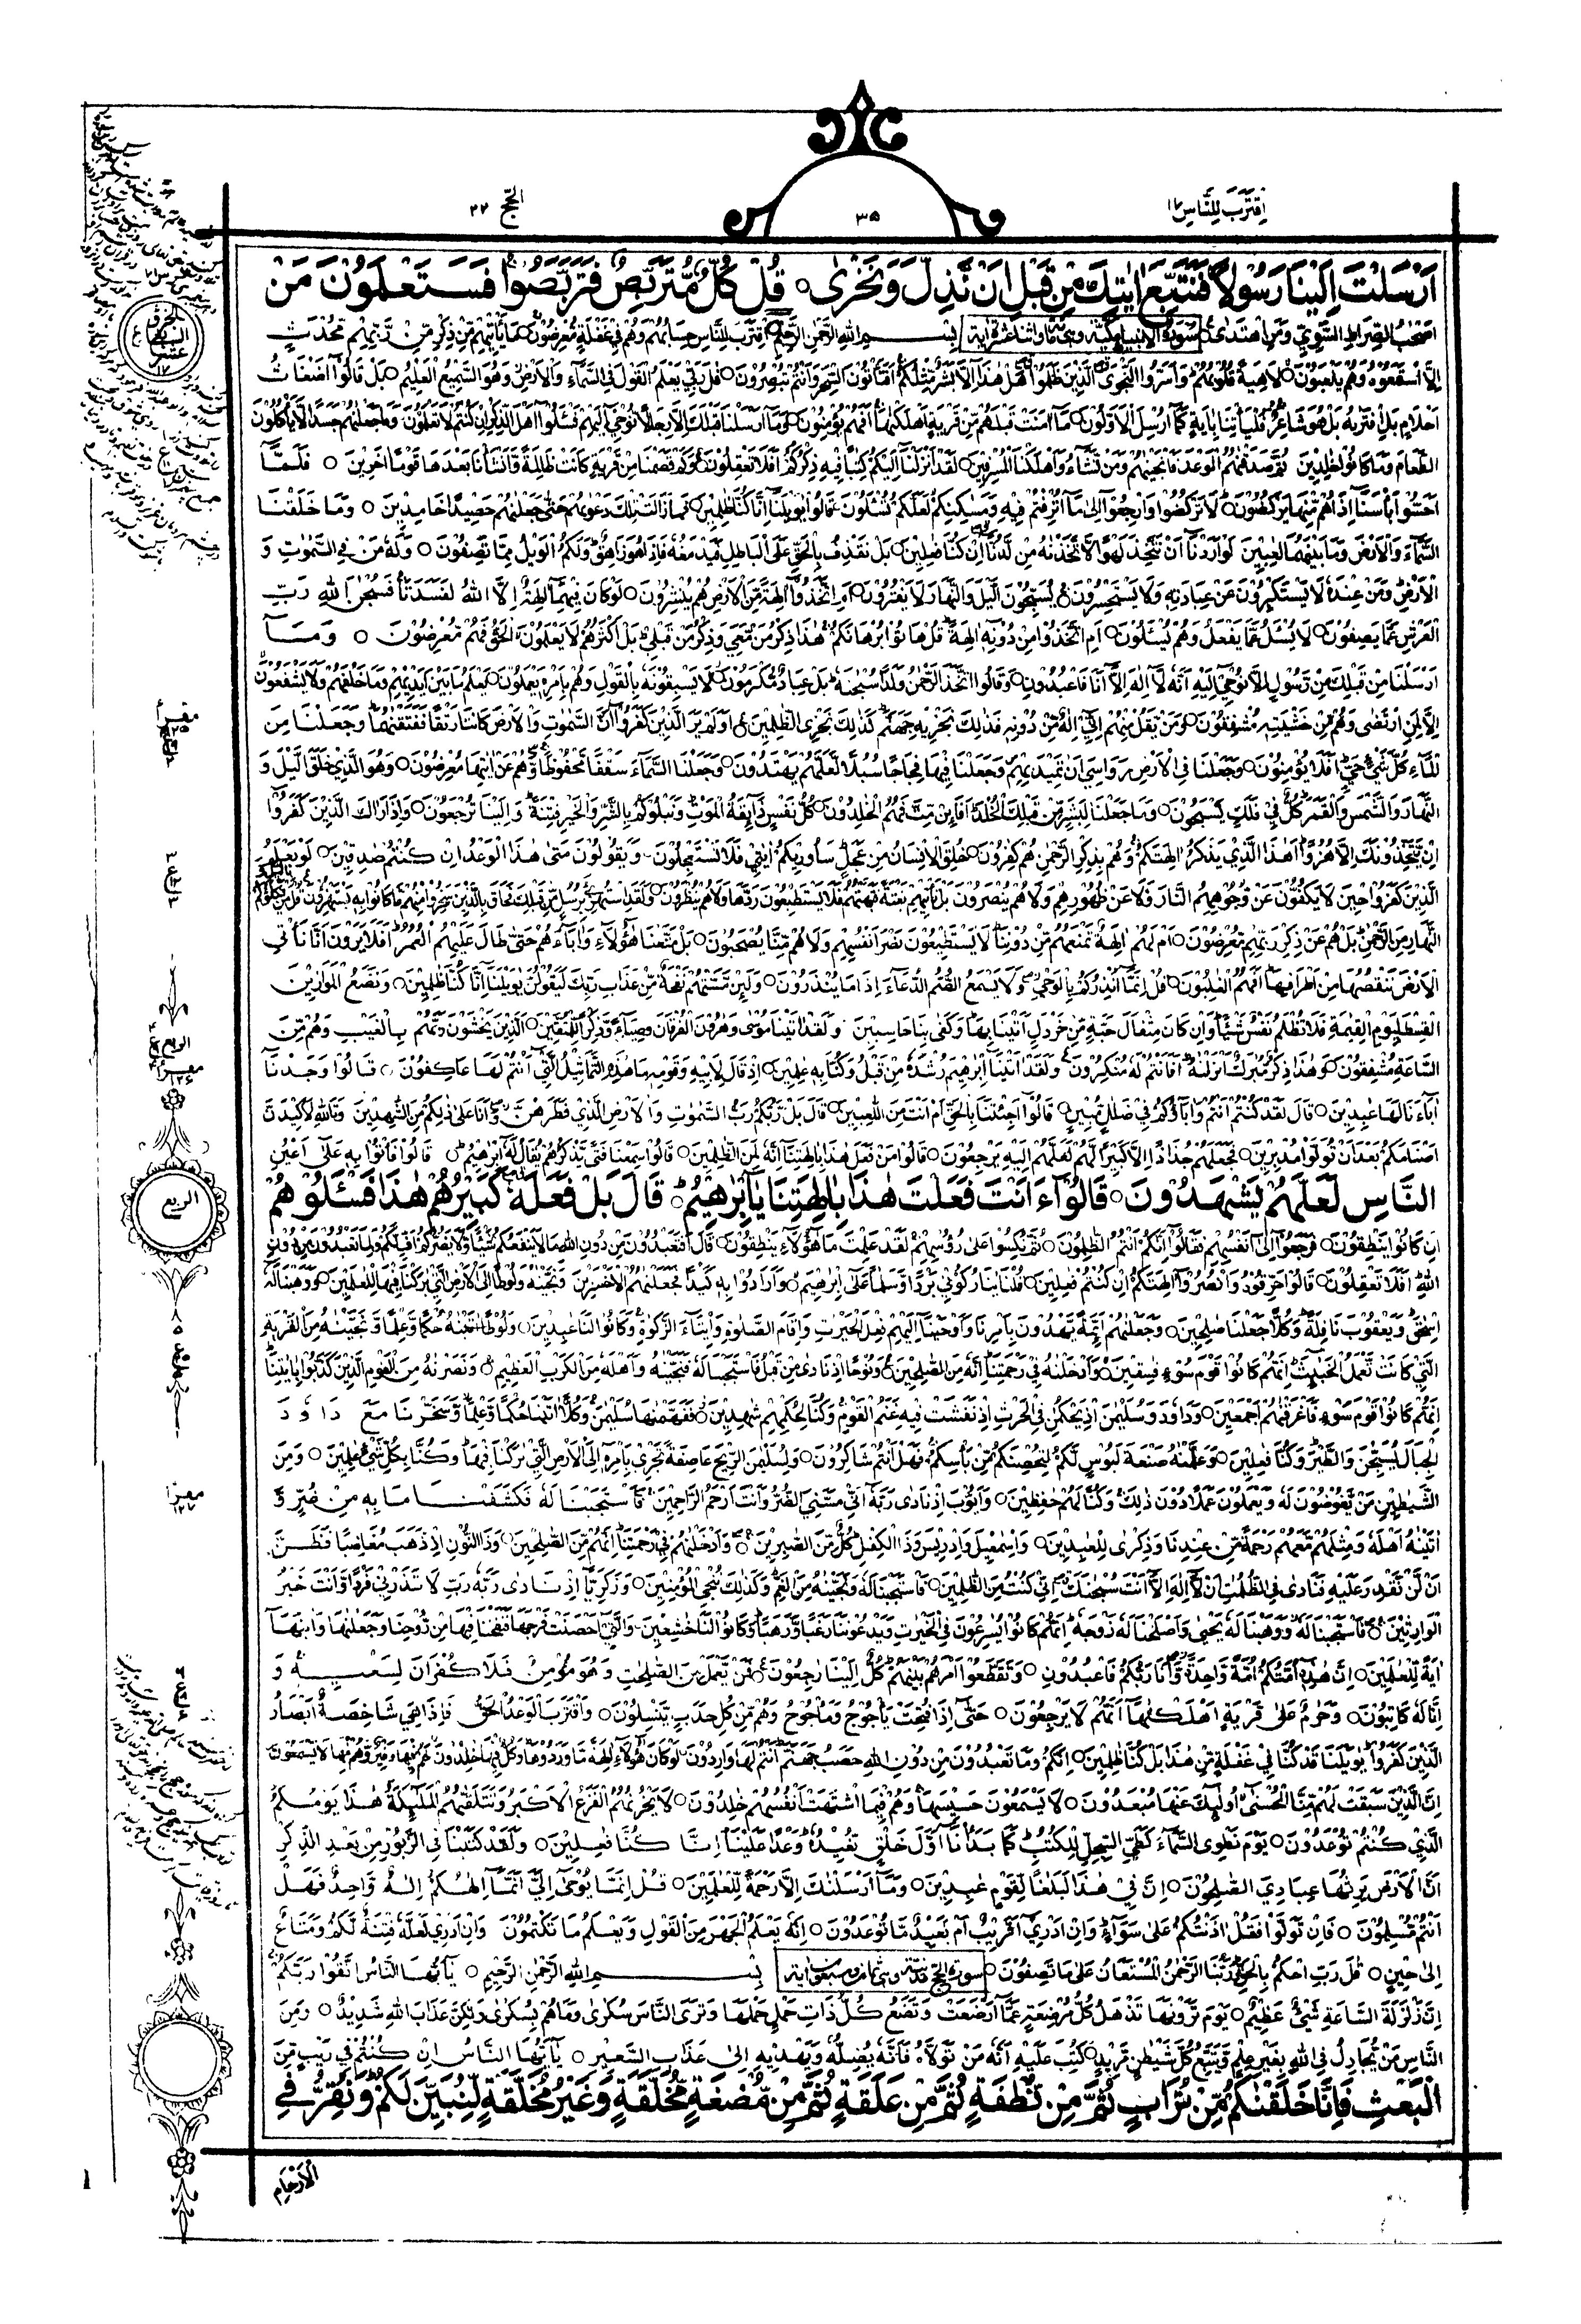 اقترب للناس ١٧
٣٥
الحج ٢٢
اَرْسَلْتَ اِلَيْنَا رَسُوْلًا فَنَتَّبِعَ اٰيٰتِكَ مِنْ قَبْلِ اَنْ نَّذِلَّ وَنَخْزٰى ○ قُلْ كُلٌّ مُّتَرَبِّصٌ فَتَرَبَّصُوْا فَسَتَعْلَمُوْنَ مَنْ
اَصْحٰبُ الصِّرَاطِ السَّوِيِّ وَمَنِ اهْتَدٰى سورة الانبياء مكية وهي مائة واثنا عشرة اية بِسْمِ اللهِ الرَّحْمٰنِ الرَّحِيْمِ اِقْتَرَبَ لِلنَّاسِ حِسَابُهُمْ وَهُمْ فِيْ غَفْلَةٍ مُّعْرِضُوْنَ مَا يَأْتِيْهِمْ مِّنْ ذِكْرٍ مِّنْ رَّبِّهِمْ مُّحْدَثٍ
اِلَّا اسْتَمَعُوْهُ وَهُمْ يَلْعَبُوْنَ ○ لَاهِيَةً قُلُوْبُهُمْ وَاَسَرُّوا النَّجْوَى الَّذِيْنَ ظَلَمُوْا هَلْ هٰذَا اِلَّا بَشَرٌ مِّثْلُكُمْ اَفَتَأْتُوْنَ السِّحْرَ وَاَنْتُمْ تُبْصِرُوْنَ ○ قٰلَ رَبِّيْ يَعْلَمُ الْقَوْلَ فِي السَّمَآءِ وَالْاَرْضِ وَهُوَ السَّمِيْعُ الْعَلِيْمُ ○ بَلْ قَالُوْا اَضْغَاثُ
اَحْلَامٍ بَلِ افْتَرٰىهُ بَلْ هُوَ شَاعِرٌ فَلْيَأْتِنَا بِاٰيَةٍ كَمَا اُرْسِلَ الْاَوَّلُوْنَ ○ مَا اٰمَنَتْ قَبْلَهُمْ مِّنْ قَرْيَةٍ اَهْلَكْنٰهَا اَفَهُمْ يُؤْمِنُوْنَ ○ وَمَا اَرْسَلْنَا قَبْلَكَ اِلَّا رِجَالًا نُّوْحِيْ اِلَيْهِمْ فَسْئَلُوْا اَهْلَ الذِّكْرِ اِنْ كُنْتُمْ لَا تَعْلَمُوْنَ ○ وَمَا جَعَلْنٰهُمْ جَسَدًا لَّا يَأْكُلُوْنَ
الطَّعَامَ وَمَا كَانُوْا خٰلِدِيْنَ ثُمَّ صَدَقْنٰهُمُ الْوَعْدَ فَاَنْجَيْنٰهُمْ وَمَنْ نَّشَآءُ وَاَهْلَكْنَا الْمُسْرِفِيْنَ ○ لَقَدْ اَنْزَلْنَا اِلَيْكُمْ كِتٰبًا فِيْهِ ذِكْرُكُمْ اَفَلَا تَعْقِلُوْنَ ○ وَكَمْ قَصَمْنَا مِنْ قَرْيَةٍ كَانَتْ ظَالِمَةً وَّاَنْشَأْنَا بَعْدَهَا قَوْمًا اٰخَرِيْنَ ○ فَلَمَّا
اَحَسُّوْا بَأْسَنَا اِذَا هُمْ مِّنْهَا يَرْكُضُوْنَ ○ لَا تَرْكُضُوْا وَارْجِعُوْا اِلٰى مَا اُتْرِفْتُمْ فِيْهِ وَمَسٰكِنِكُمْ لَعَلَّكُمْ تُسْئَلُوْنَ ○ قَالُوْا يٰوَيْلَنَا اِنَّا كُنَّا ظٰلِمِيْنَ ○ فَمَا زَالَتْ تِّلْكَ دَعْوٰىهُمْ حَتّٰى جَعَلْنٰهُمْ حَصِيْدًا خٰمِدِيْنَ ○ وَمَا خَلَقْنَا
السَّمَآءَ وَالْاَرْضَ وَمَا بَيْنَهُمَا لٰعِبِيْنَ لَوْ اَرَدْنَا اَنْ نَّتَّخِذَ لَهْوًا لَّاتَّخَذْنٰهُ مِنْ لَّدُنَّا اِنْ كُنَّا فٰعِلِيْنَ ○ بَلْ نَقْذِفُ بِالْحَقِّ عَلَى الْبَاطِلِ فَيَدْمَغُهٗ فَاِذَا هُوَ زَاهِقٌ وَلَكُمُ الْوَيْلُ مِمَّا تَصِفُوْنَ ○ وَلَهٗ مَنْ فِي السَّمٰوٰتِ وَ
الْاَرْضِ وَمَنْ عِنْدَهٗ لَا يَسْتَكْبِرُوْنَ عَنْ عِبَادَتِهٖ وَلَا يَسْتَحْسِرُوْنَ ○ يُسَبِّحُوْنَ الَّيْلَ وَالنَّهَارَ لَا يَفْتُرُوْنَ ○ اَمِ اتَّخَذُوْا اٰلِهَةً مِّنَ الْاَرْضِ هُمْ يُنْشِرُوْنَ ○ لَوْ كَانَ فِيْهِمَا اٰلِهَةٌ اِلَّا اللهُ لَفَسَدَتَا فَسُبْحٰنَ اللهِ رَبِّ
الْعَرْشِ عَمَّا يَصِفُوْنَ ○ لَا يُسْئَلُ عَمَّا يَفْعَلُ وَهُمْ يُسْئَلُوْنَ ○ اَمِ اتَّخَذُوْا مِنْ دُوْنِهٖ اٰلِهَةً قُلْ هَاتُوْا بُرْهَانَكُمْ هٰذَا ذِكْرُ مَنْ مَّعِيَ وَذِكْرُ مَنْ قَبْلِيْ بَلْ اَكْثَرُهُمْ لَا يَعْلَمُوْنَ الْحَقَّ فَهُمْ مُّعْرِضُوْنَ ○ وَمَا
اَرْسَلْنَا مِنْ قَبْلِكَ مِنْ رَّسُوْلٍ اِلَّا نُوْحِيْ اِلَيْهِ اَنَّهٗ لَا اِلٰهَ اِلَّا اَنَا فَاعْبُدُوْنِ ○ وَقَالُوا اتَّخَذَ الرَّحْمٰنُ وَلَدًا سُبْحٰنَهٗ بَلْ عِبَادٌ مُّكْرَمُوْنَ ○ لَا يَسْبِقُوْنَهٗ بِالْقَوْلِ وَهُمْ بِاَمْرِهٖ يَعْمَلُوْنَ ○ يَعْلَمُ مَا بَيْنَ اَيْدِيْهِمْ وَمَا خَلْفَهُمْ وَلَا يَشْفَعُوْنَ
اِلَّا لِمَنِ ارْتَضٰى وَهُمْ مِّنْ خَشْيَتِهٖ مُشْفِقُوْنَ ○ وَمَنْ يَّقُلْ مِنْهُمْ اِنِّيْ اِلٰهٌ مِّنْ دُوْنِهٖ فَذٰلِكَ نَجْزِيْهِ جَهَنَّمَ كَذٰلِكَ نَجْزِي الظّٰلِمِيْنَ ○ اَوَلَمْ يَرَ الَّذِيْنَ كَفَرُوْا اَنَّ السَّمٰوٰتِ وَالْاَرْضَ كَانَتَا رَتْقًا فَفَتَقْنٰهُمَا وَجَعَلْنَا مِنَ
الْمَآءِ كُلَّ شَيْءٍ حَيٍّ اَفَلَا يُؤْمِنُوْنَ ○ وَجَعَلْنَا فِي الْاَرْضِ رَوَاسِيَ اَنْ تَمِيْدَ بِهِمْ وَجَعَلْنَا فِيْهَا فِجَاجًا سُبُلًا لَّعَلَّهُمْ يَهْتَدُوْنَ ○ وَجَعَلْنَا السَّمَآءَ سَقْفًا مَّحْفُوْظًا وَّهُمْ عَنْ اٰيٰتِهَا مُعْرِضُوْنَ ○ وَهُوَ الَّذِيْ خَلَقَ الَّيْلَ وَ
النَّهَارَ وَالشَّمْسَ وَالْقَمَرَ كُلٌّ فِيْ فَلَكٍ يَّسْبَحُوْنَ ○ وَمَا جَعَلْنَا لِبَشَرٍ مِّنْ قَبْلِكَ الْخُلْدَ اَفَا۟ئِنْ مِّتَّ فَهُمُ الْخٰلِدُوْنَ ○ كُلُّ نَفْسٍ ذَآئِقَةُ الْمَوْتِ وَنَبْلُوْكُمْ بِالشَّرِّ وَالْخَيْرِ فِتْنَةً وَاِلَيْنَا تُرْجَعُوْنَ ○ وَاِذَا رَاٰكَ الَّذِيْنَ كَفَرُوْا
اِنْ يَّتَّخِذُوْنَكَ اِلَّا هُزُوًا اَهٰذَا الَّذِيْ يَذْكُرُ اٰلِهَتَكُمْ وَهُمْ بِذِكْرِ الرَّحْمٰنِ هُمْ كٰفِرُوْنَ ○ خُلِقَ الْاِنْسَانُ مِنْ عَجَلٍ سَاُورِيْكُمْ اٰيٰتِيْ فَلَا تَسْتَعْجِلُوْنِ ○ وَيَقُوْلُوْنَ مَتٰى هٰذَا الْوَعْدُ اِنْ كُنْتُمْ صٰدِقِيْنَ ○ لَوْ يَعْلَمُ
الَّذِيْنَ كَفَرُوْا حِيْنَ لَا يَكُفُّوْنَ عَنْ وُّجُوْهِهِمُ النَّارَ وَلَا عَنْ ظُهُوْرِهِمْ وَلَا هُمْ يُنْصَرُوْنَ بَلْ تَأْتِيْهِمْ بَغْتَةً فَتَبْهَتُهُمْ فَلَا يَسْتَطِيْعُوْنَ رَدَّهَا وَلَا هُمْ يُنْظَرُوْنَ ○ وَلَقَدِ اسْتُهْزِئَ بِرُسُلٍ مِّنْ قَبْلِكَ فَحَاقَ بِالَّذِيْنَ سَخِرُوْا مِنْهُمْ مَّا كَانُوْا بِهٖ يَسْتَهْزِءُوْنَ ○ قُلْ مَنْ يَّكْلَؤُكُمْ بِالَّيْلِ وَ
النَّهَارِ مِنَ الرَّحْمٰنِ بَلْ هُمْ عَنْ ذِكْرِ رَبِّهِمْ مُّعْرِضُوْنَ ○ اَمْ لَهُمْ اٰلِهَةٌ تَمْنَعُهُمْ مِّنْ دُوْنِنَا لَا يَسْتَطِيْعُوْنَ نَصْرَ اَنْفُسِهِمْ وَلَا هُمْ مِّنَّا يُصْحَبُوْنَ ○ بَلْ مَتَّعْنَا هٰؤُلَآءِ وَاٰبَآءَهُمْ حَتّٰى طَالَ عَلَيْهِمُ الْعُمُرُ اَفَلَا يَرَوْنَ اَنَّا نَأْتِي
الْاَرْضَ نَنْقُصُهَا مِنْ اَطْرَافِهَا اَفَهُمُ الْغٰلِبُوْنَ ○ قُلْ اِنَّمَا اُنْذِرُكُمْ بِالْوَحْيِ وَلَا يَسْمَعُ الصُّمُّ الدُّعَآءَ اِذَا مَا يُنْذَرُوْنَ ○ وَلَئِنْ مَّسَّتْهُمْ نَفْحَةٌ مِّنْ عَذَابِ رَبِّكَ لَيَقُوْلُنَّ يٰوَيْلَنَا اِنَّا كُنَّا ظٰلِمِيْنَ ○ وَنَضَعُ الْمَوَازِيْنَ
الْقِسْطَ لِيَوْمِ الْقِيٰمَةِ فَلَا تُظْلَمُ نَفْسٌ شَيْئًا وَاِنْ كَانَ مِثْقَالَ حَبَّةٍ مِّنْ خَرْدَلٍ اَتَيْنَا بِهَا وَكَفٰى بِنَا حَاسِبِيْنَ وَلَقَدْ اٰتَيْنَا مُوْسٰى وَهٰرُوْنَ الْفُرْقَانَ وَضِيَآءً وَّذِكْرًا لِّلْمُتَّقِيْنَ ○ الَّذِيْنَ يَخْشَوْنَ رَبَّهُمْ بِالْغَيْبِ وَهُمْ مِّنَ
السَّاعَةِ مُشْفِقُوْنَ ○ وَهٰذَا ذِكْرٌ مُّبٰرَكٌ اَنْزَلْنٰهُ اَفَاَنْتُمْ لَهٗ مُنْكِرُوْنَ وَلَقَدْ اٰتَيْنَا اِبْرٰهِيْمَ رُشْدَهٗ مِنْ قَبْلُ وَكُنَّا بِهٖ عٰلِمِيْنَ ○ اِذْ قَالَ لِاَبِيْهِ وَقَوْمِهٖ مَا هٰذِهِ التَّمَاثِيْلُ الَّتِيْ اَنْتُمْ لَهَا عَاكِفُوْنَ ○ قَالُوْا وَجَدْنَا
اٰبَآءَنَا لَهَا عٰبِدِيْنَ ○ قَالَ لَقَدْ كُنْتُمْ اَنْتُمْ وَاٰبَآؤُكُمْ فِيْ ضَلٰلٍ مُّبِيْنٍ قَالُوْا اَجِئْتَنَا بِالْحَقِّ اَمْ اَنْتَ مِنَ اللّٰعِبِيْنَ ○ قَالَ بَلْ رَّبُّكُمْ رَبُّ السَّمٰوٰتِ وَالْاَرْضِ الَّذِيْ فَطَرَهُنَّ وَاَنَا عَلٰى ذٰلِكُمْ مِّنَ الشّٰهِدِيْنَ وَتَاللهِ لَاَكِيْدَنَّ
اَصْنَامَكُمْ بَعْدَ اَنْ تُوَلُّوْا مُدْبِرِيْنَ ○ فَجَعَلَهُمْ جُذَاذًا اِلَّا كَبِيْرًا لَّهُمْ لَعَلَّهُمْ اِلَيْهِ يَرْجِعُوْنَ ○ قَالُوْا مَنْ فَعَلَ هٰذَا بِاٰلِهَتِنَا اِنَّهٗ لَمِنَ الظّٰلِمِيْنَ ○ قَالُوْا سَمِعْنَا فَتًى يَّذْكُرُهُمْ يُقَالُ لَهٗ اِبْرٰهِيْمُ قَالُوْا فَأْتُوْا بِهٖ عَلٰى اَعْيُنِ
النَّاسِ لَعَلَّهُمْ يَشْهَدُوْنَ ○ قَالُوْا ءَاَنْتَ فَعَلْتَ هٰذَا بِاٰلِهَتِنَا يٰٓاِبْرٰهِيْمُ قَالَ بَلْ فَعَلَهٗ كَبِيْرُهُمْ هٰذَا فَسْئَلُوْهُمْ
اِنْ كَانُوْا يَنْطِقُوْنَ ○ فَرَجَعُوْا اِلٰى اَنْفُسِهِمْ فَقَالُوْا اِنَّكُمْ اَنْتُمُ الظّٰلِمُوْنَ ○ ثُمَّ نُكِسُوْا عَلٰى رُءُوْسِهِمْ لَقَدْ عَلِمْتَ مَا هٰؤُلَآءِ يَنْطِقُوْنَ ○ قَالَ اَفَتَعْبُدُوْنَ مِنْ دُوْنِ اللهِ مَا لَا يَنْفَعُكُمْ شَيْئًا وَّلَا يَضُرُّكُمْ اُفٍّ لَّكُمْ وَلِمَا تَعْبُدُوْنَ مِنْ دُوْنِ
اللهِ اَفَلَا تَعْقِلُوْنَ ○ قَالُوْا حَرِّقُوْهُ وَانْصُرُوْا اٰلِهَتَكُمْ اِنْ كُنْتُمْ فٰعِلِيْنَ ○ قُلْنَا يٰنَارُ كُوْنِيْ بَرْدًا وَّسَلٰمًا عَلٰى اِبْرٰهِيْمَ ○ وَاَرَادُوْا بِهٖ كَيْدًا فَجَعَلْنٰهُمُ الْاَخْسَرِيْنَ وَنَجَّيْنٰهُ وَلُوْطًا اِلَى الْاَرْضِ الَّتِيْ بٰرَكْنَا فِيْهَا لِلْعٰلَمِيْنَ ○ وَوَهَبْنَا لَهٗ
اِسْحٰقَ وَيَعْقُوْبَ نَافِلَةً وَكُلًّا جَعَلْنَا صٰلِحِيْنَ ○ وَجَعَلْنٰهُمْ اَئِمَّةً يَّهْدُوْنَ بِاَمْرِنَا وَاَوْحَيْنَا اِلَيْهِمْ فِعْلَ الْخَيْرٰتِ وَاِقَامَ الصَّلٰوةِ وَاِيْتَآءَ الزَّكٰوةِ وَكَانُوْا لَنَا عٰبِدِيْنَ ○ وَلُوْطًا اٰتَيْنٰهُ حُكْمًا وَّعِلْمًا وَّنَجَّيْنٰهُ مِنَ الْقَرْيَةِ
الَّتِيْ كَانَتْ تَّعْمَلُ الْخَبٰئِثَ اِنَّهُمْ كَانُوْا قَوْمَ سَوْءٍ فٰسِقِيْنَ ○ وَاَدْخَلْنٰهُ فِيْ رَحْمَتِنَا اِنَّهٗ مِنَ الصّٰلِحِيْنَ ○ وَنُوْحًا اِذْ نَادٰى مِنْ قَبْلُ فَاسْتَجَبْنَا لَهٗ فَنَجَّيْنٰهُ وَاَهْلَهٗ مِنَ الْكَرْبِ الْعَظِيْمِ ○ وَنَصَرْنٰهُ مِنَ الْقَوْمِ الَّذِيْنَ كَذَّبُوْا بِاٰيٰتِنَا
اِنَّهُمْ كَانُوْا قَوْمَ سَوْءٍ فَاَغْرَقْنٰهُمْ اَجْمَعِيْنَ ○ وَدَاوٗدَ وَسُلَيْمٰنَ اِذْ يَحْكُمٰنِ فِي الْحَرْثِ اِذْ نَفَشَتْ فِيْهِ غَنَمُ الْقَوْمِ وَكُنَّا لِحُكْمِهِمْ شٰهِدِيْنَ ○ فَفَهَّمْنٰهَا سُلَيْمٰنَ وَكُلًّا اٰتَيْنَا حُكْمًا وَّعِلْمًا وَّسَخَّرْنَا مَعَ دَاوٗدَ
الْجِبَالَ يُسَبِّحْنَ وَالطَّيْرَ وَكُنَّا فٰعِلِيْنَ ○ وَعَلَّمْنٰهُ صَنْعَةَ لَبُوْسٍ لَّكُمْ لِتُحْصِنَكُمْ مِّنْ بَأْسِكُمْ فَهَلْ اَنْتُمْ شَاكِرُوْنَ ○ وَلِسُلَيْمٰنَ الرِّيْحَ عَاصِفَةً تَجْرِيْ بِاَمْرِهٖ اِلَى الْاَرْضِ الَّتِيْ بٰرَكْنَا فِيْهَا وَكُنَّا بِكُلِّ شَيْءٍ عٰلِمِيْنَ ○ وَمِنَ
الشَّيٰطِيْنِ مَنْ يَّغُوْصُوْنَ لَهٗ وَيَعْمَلُوْنَ عَمَلًا دُوْنَ ذٰلِكَ وَكُنَّا لَهُمْ حٰفِظِيْنَ ○ وَاَيُّوْبَ اِذْ نَادٰى رَبَّهٗ اَنِّيْ مَسَّنِيَ الضُّرُّ وَاَنْتَ اَرْحَمُ الرّٰحِمِيْنَ فَاسْتَجَبْنَا لَهٗ فَكَشَفْنَا مَا بِهٖ مِنْ ضُرٍّ وَّ
اٰتَيْنٰهُ اَهْلَهٗ وَمِثْلَهُمْ مَّعَهُمْ رَحْمَةً مِّنْ عِنْدِنَا وَذِكْرٰى لِلْعٰبِدِيْنَ ○ وَاِسْمٰعِيْلَ وَاِدْرِيْسَ وَذَا الْكِفْلِ كُلٌّ مِّنَ الصّٰبِرِيْنَ ○ وَاَدْخَلْنٰهُمْ فِيْ رَحْمَتِنَا اِنَّهُمْ مِّنَ الصّٰلِحِيْنَ ○ وَذَا النُّوْنِ اِذْ ذَّهَبَ مُغَاضِبًا فَظَنَّ
اَنْ لَّنْ نَّقْدِرَ عَلَيْهِ فَنَادٰى فِي الظُّلُمٰتِ اَنْ لَّا اِلٰهَ اِلَّا اَنْتَ سُبْحٰنَكَ اِنِّيْ كُنْتُ مِنَ الظّٰلِمِيْنَ ○ فَاسْتَجَبْنَا لَهٗ وَنَجَّيْنٰهُ مِنَ الْغَمِّ وَكَذٰلِكَ نُنْجِي الْمُؤْمِنِيْنَ ○ وَزَكَرِيَّا اِذْ نَادٰى رَبَّهٗ رَبِّ لَا تَذَرْنِيْ فَرْدًا وَّاَنْتَ خَيْرُ
الْوَارِثِيْنَ ○ فَاسْتَجَبْنَا لَهٗ وَوَهَبْنَا لَهٗ يَحْيٰى وَاَصْلَحْنَا لَهٗ زَوْجَهٗ اِنَّهُمْ كَانُوْا يُسٰرِعُوْنَ فِي الْخَيْرٰتِ وَيَدْعُوْنَنَا رَغَبًا وَّرَهَبًا وَكَانُوْا لَنَا خٰشِعِيْنَ ○ وَالَّتِيْ اَحْصَنَتْ فَرْجَهَا فَنَفَخْنَا فِيْهَا مِنْ رُّوْحِنَا وَجَعَلْنٰهَا وَابْنَهَا
اٰيَةً لِّلْعٰلَمِيْنَ ○ اِنَّ هٰذِهٖ اُمَّتُكُمْ اُمَّةً وَّاحِدَةً وَّاَنَا رَبُّكُمْ فَاعْبُدُوْنِ ○ وَتَقَطَّعُوْا اَمْرَهُمْ بَيْنَهُمْ كُلٌّ اِلَيْنَا رٰجِعُوْنَ ○ فَمَنْ يَّعْمَلْ مِنَ الصّٰلِحٰتِ وَهُوَ مُؤْمِنٌ فَلَا كُفْرَانَ لِسَعْيِهٖ وَ
اِنَّا لَهٗ كَاتِبُوْنَ ○ وَحَرٰمٌ عَلٰى قَرْيَةٍ اَهْلَكْنٰهَا اَنَّهُمْ لَا يَرْجِعُوْنَ ○ حَتّٰى اِذَا فُتِحَتْ يَأْجُوْجُ وَمَأْجُوْجُ وَهُمْ مِّنْ كُلِّ حَدَبٍ يَّنْسِلُوْنَ ○ وَاقْتَرَبَ الْوَعْدُ الْحَقُّ فَاِذَا هِيَ شَاخِصَةٌ اَبْصَارُ
الَّذِيْنَ كَفَرُوْا يٰوَيْلَنَا قَدْ كُنَّا فِيْ غَفْلَةٍ مِّنْ هٰذَا بَلْ كُنَّا ظٰلِمِيْنَ ○ اِنَّكُمْ وَمَا تَعْبُدُوْنَ مِنْ دُوْنِ اللهِ حَصَبُ جَهَنَّمَ اَنْتُمْ لَهَا وَارِدُوْنَ ○ لَوْ كَانَ هٰؤُلَآءِ اٰلِهَةً مَّا وَرَدُوْهَا وَكُلٌّ فِيْهَا خٰلِدُوْنَ ○ لَهُمْ فِيْهَا زَفِيْرٌ وَّهُمْ فِيْهَا لَا يَسْمَعُوْنَ
اِنَّ الَّذِيْنَ سَبَقَتْ لَهُمْ مِّنَّا الْحُسْنٰى اُولٰئِكَ عَنْهَا مُبْعَدُوْنَ ○ لَا يَسْمَعُوْنَ حَسِيْسَهَا وَهُمْ فِيْ مَا اشْتَهَتْ اَنْفُسُهُمْ خٰلِدُوْنَ ○ لَا يَحْزُنُهُمُ الْفَزَعُ الْاَكْبَرُ وَتَتَلَقّٰىهُمُ الْمَلٰئِكَةُ هٰذَا يَوْمُكُمُ
الَّذِيْ كُنْتُمْ تُوْعَدُوْنَ ○ يَوْمَ نَطْوِي السَّمَآءَ كَطَيِّ السِّجِلِّ لِلْكُتُبِ كَمَا بَدَأْنَا اَوَّلَ خَلْقٍ نُّعِيْدُهٗ وَعْدًا عَلَيْنَا اِنَّا كُنَّا فٰعِلِيْنَ ○ وَلَقَدْ كَتَبْنَا فِي الزَّبُوْرِ مِنْ بَعْدِ الذِّكْرِ
اَنَّ الْاَرْضَ يَرِثُهَا عِبَادِيَ الصّٰلِحُوْنَ ○ اِنَّ فِيْ هٰذَا لَبَلٰغًا لِّقَوْمٍ عٰبِدِيْنَ ○ وَمَا اَرْسَلْنٰكَ اِلَّا رَحْمَةً لِّلْعٰلَمِيْنَ ○ قُلْ اِنَّمَا يُوْحٰى اِلَيَّ اَنَّمَا اِلٰهُكُمْ اِلٰهٌ وَّاحِدٌ فَهَلْ
اَنْتُمْ مُّسْلِمُوْنَ ○ فَاِنْ تَوَلَّوْا فَقُلْ اٰذَنْتُكُمْ عَلٰى سَوَآءٍ وَاِنْ اَدْرِيْ اَقَرِيْبٌ اَمْ بَعِيْدٌ مَّا تُوْعَدُوْنَ ○ اِنَّهٗ يَعْلَمُ الْجَهْرَ مِنَ الْقَوْلِ وَيَعْلَمُ مَا تَكْتُمُوْنَ وَاِنْ اَدْرِيْ لَعَلَّهٗ فِتْنَةٌ لَّكُمْ وَمَتَاعٌ
اِلٰى حِيْنٍ ○ قٰلَ رَبِّ احْكُمْ بِالْحَقِّ وَرَبُّنَا الرَّحْمٰنُ الْمُسْتَعَانُ عَلٰى مَا تَصِفُوْنَ ○ سورة الحج مدنية وهي ثمان وسبعون اية بِسْمِ اللهِ الرَّحْمٰنِ الرَّحِيْمِ ○ يٰٓاَيُّهَا النَّاسُ اتَّقُوْا رَبَّكُمْ
اِنَّ زَلْزَلَةَ السَّاعَةِ شَيْءٌ عَظِيْمٌ ○ يَوْمَ تَرَوْنَهَا تَذْهَلُ كُلُّ مُرْضِعَةٍ عَمَّا اَرْضَعَتْ وَتَضَعُ كُلُّ ذَاتِ حَمْلٍ حَمْلَهَا وَتَرَى النَّاسَ سُكٰرٰى وَمَا هُمْ بِسُكٰرٰى وَلٰكِنَّ عَذَابَ اللهِ شَدِيْدٌ ○ وَمِنَ
النَّاسِ مَنْ يُّجَادِلُ فِي اللهِ بِغَيْرِ عِلْمٍ وَّيَتَّبِعُ كُلَّ شَيْطٰنٍ مَّرِيْدٍ ○ كُتِبَ عَلَيْهِ اَنَّهٗ مَنْ تَوَلَّاهُ فَاَنَّهٗ يُضِلُّهٗ وَيَهْدِيْهِ اِلٰى عَذَابِ السَّعِيْرِ ○ يٰٓاَيُّهَا النَّاسُ اِنْ كُنْتُمْ فِيْ رَيْبٍ مِّنَ
الْبَعْثِ فَاِنَّا خَلَقْنٰكُمْ مِّنْ تُرَابٍ ثُمَّ مِنْ نُّطْفَةٍ ثُمَّ مِنْ عَلَقَةٍ ثُمَّ مِنْ مُّضْغَةٍ مُّخَلَّقَةٍ وَّغَيْرِ مُخَلَّقَةٍ لِّنُبَيِّنَ لَكُمْ وَنُقِرُّ فِي
الْاَرْحَامِ
الربع